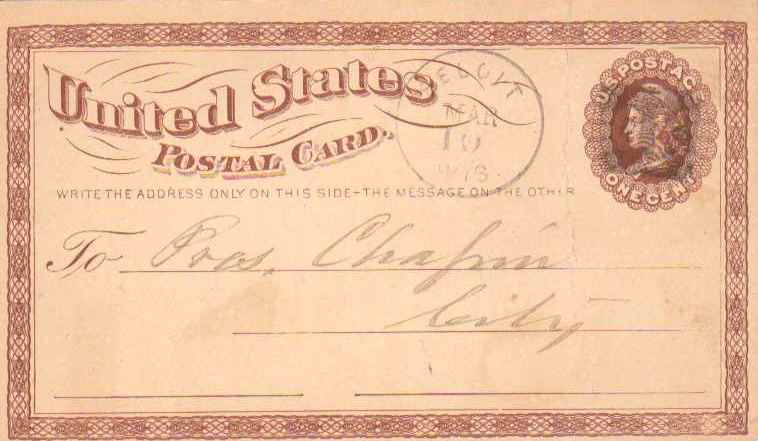 United States
POSTAL CARD.
WRITE THE ADDRESS ONLY ON THIS SIDE-THE MESSAGE ON THE OTHER
To Pres. Chapin
City
BELOIT
MAR
19
WIS
U.S. POSTAGE
ONE CENT